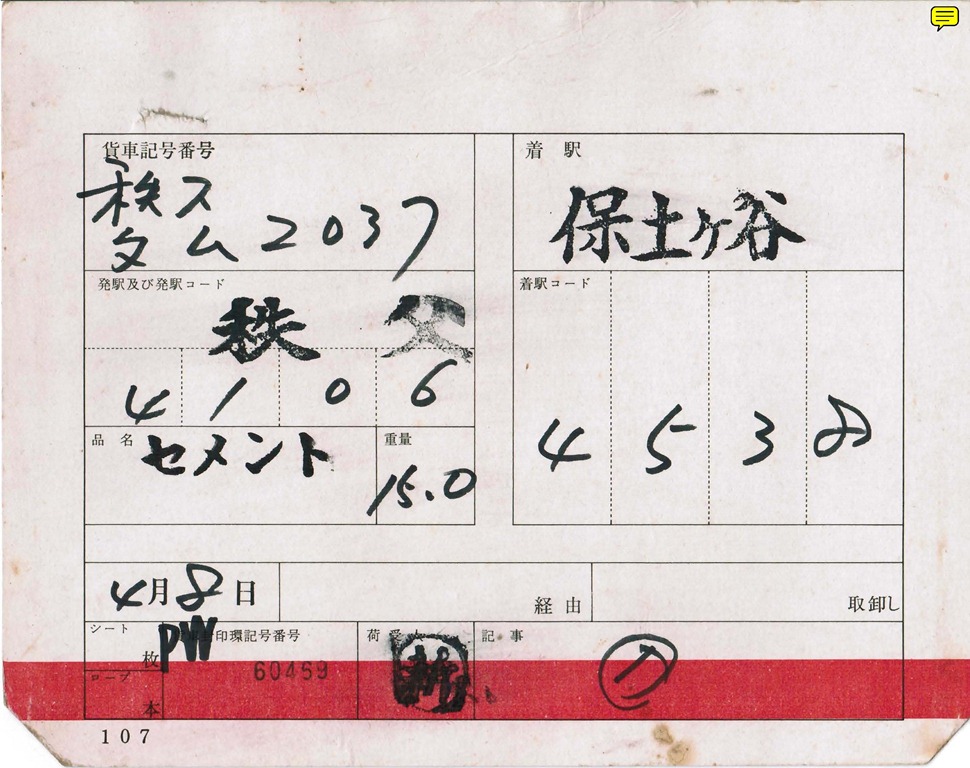 貨車記号番号
秩父
タム2037
着 駅
保土ヶ谷
発駅及び発駅コード
秩父
4 1 0 6
着駅コード
4 5 3 8
品 名
セメント
重量
15.0
4月8日
経由
取卸し
シート
枚
PW
印環記号番号
60469
荷受人
記 事
ロープ
本
107